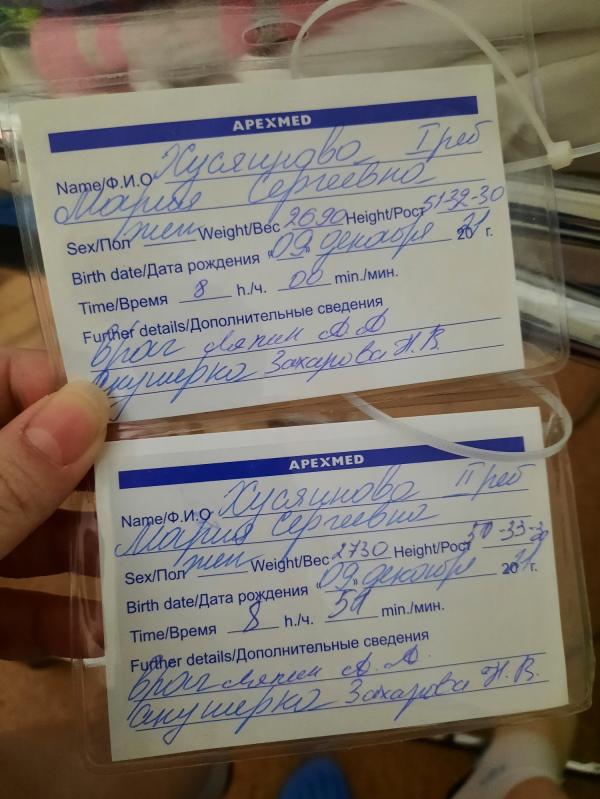 APEXMED
Name/Ф.И.О Хусяинова I реб
Мария Сергеевна
Sex/Пол жен Weight/Вес 2690 Height/Рост 51-32-30
Birth date/Дата рождения "09" декабря 2021 г.
Time/Время 8 h./ч. 00 min./мин.
Further details/Дополнительные сведения
Врач Ляпин А А
Акушерка Захарова Н.В.
APEXMED
Name/Ф.И.О Хусяинова II реб
Мария Сергеевна
Sex/Пол жен Weight/Вес 2730 Height/Рост 50-33-
Birth date/Дата рождения "09" декабря 2021 г.
Time/Время 8 h./ч. min./мин.
Further details/Дополнительные сведения
Врач Ляпин А.А.
Акушерка Захарова Н.В.